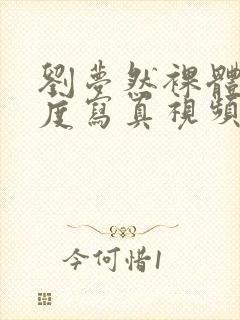 劉夢然裸體
度寫真視頻
今何惜1